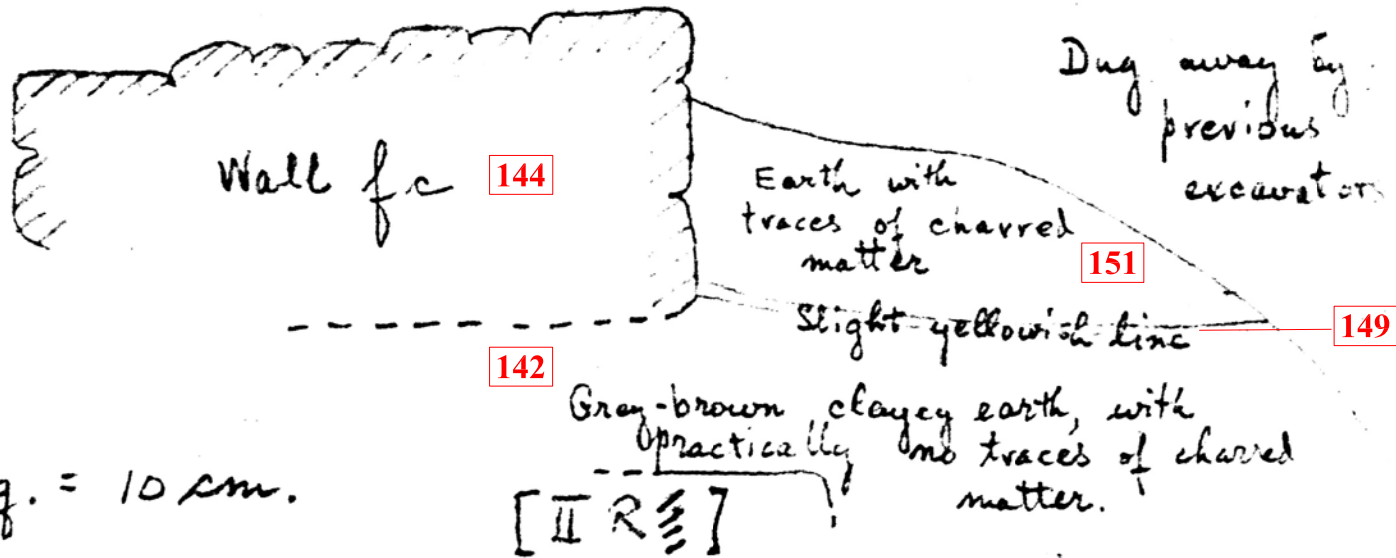 Dug away by
previous
excavators
Wall fc 144
Earth with
traces of charred
matter
151
Slight yellowish line
149
142
Grey-brown clayey earth, with
practically no traces of charred
matter.
q. = 10 cm.
[II R ]